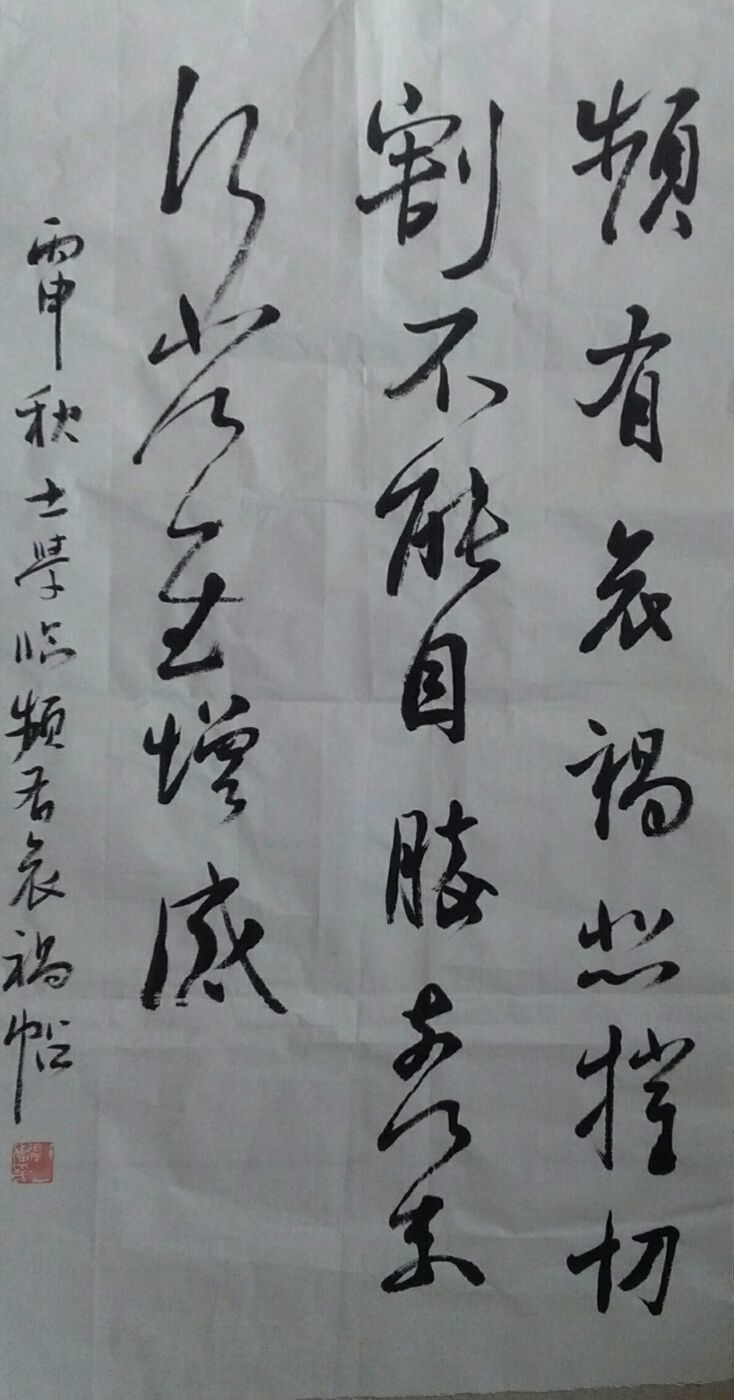 頻有哀禍悲摧切
割不能自勝奈何奈
何省慰增感
丙申秋士學臨頻有哀禍帖